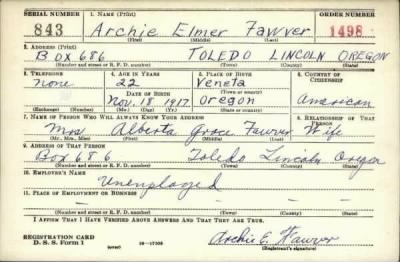 SERIAL NUMBER 1. NAME (Print) ORDER NUMBER
843 Archie Elmer Fawver 1498
(First) (Middle) (Last)
2. ADDRESS (Print)
Box 686 TOLEDO LINCOLN OREGON
(Number and street or R. F. D. number) (Town) (County) (State)
3. TELEPHONE 4. AGE IN YEARS 5. PLACE OF BIRTH 6. COUNTRY OF CITIZENSHIP
none 22 Veneta
DATE OF BIRTH (Town or county)
Nov. 18 1917 Oregon American
(Exchange) (Number) (Mo.) (Day) (Yr.) (State or country)
7. NAME OF PERSON WHO WILL ALWAYS KNOW YOUR ADDRESS 8. RELATIONSHIP OF THAT PERSON
Mrs Alberta Grace Fawver Wife
(Mr., Mrs., Miss) (First) (Middle) (Last)
9. ADDRESS OF THAT PERSON
Box 686 Toledo Lincoln Oregon
(Number and street or R. F. D. number) (Town) (County) (State)
10. EMPLOYER'S NAME
Unemployed
11. PLACE OF EMPLOYMENT OR BUSINESS
– – – –
(Number and street or R. F. D. number) (Town) (County) (State)
I AFFIRM THAT I HAVE VERIFIED ABOVE ANSWERS AND THAT THEY ARE TRUE.
REGISTRATION CARD
D. S. S. Form 1 (over) 16—17105 Archie E. Fawver
(Registrant's signature)